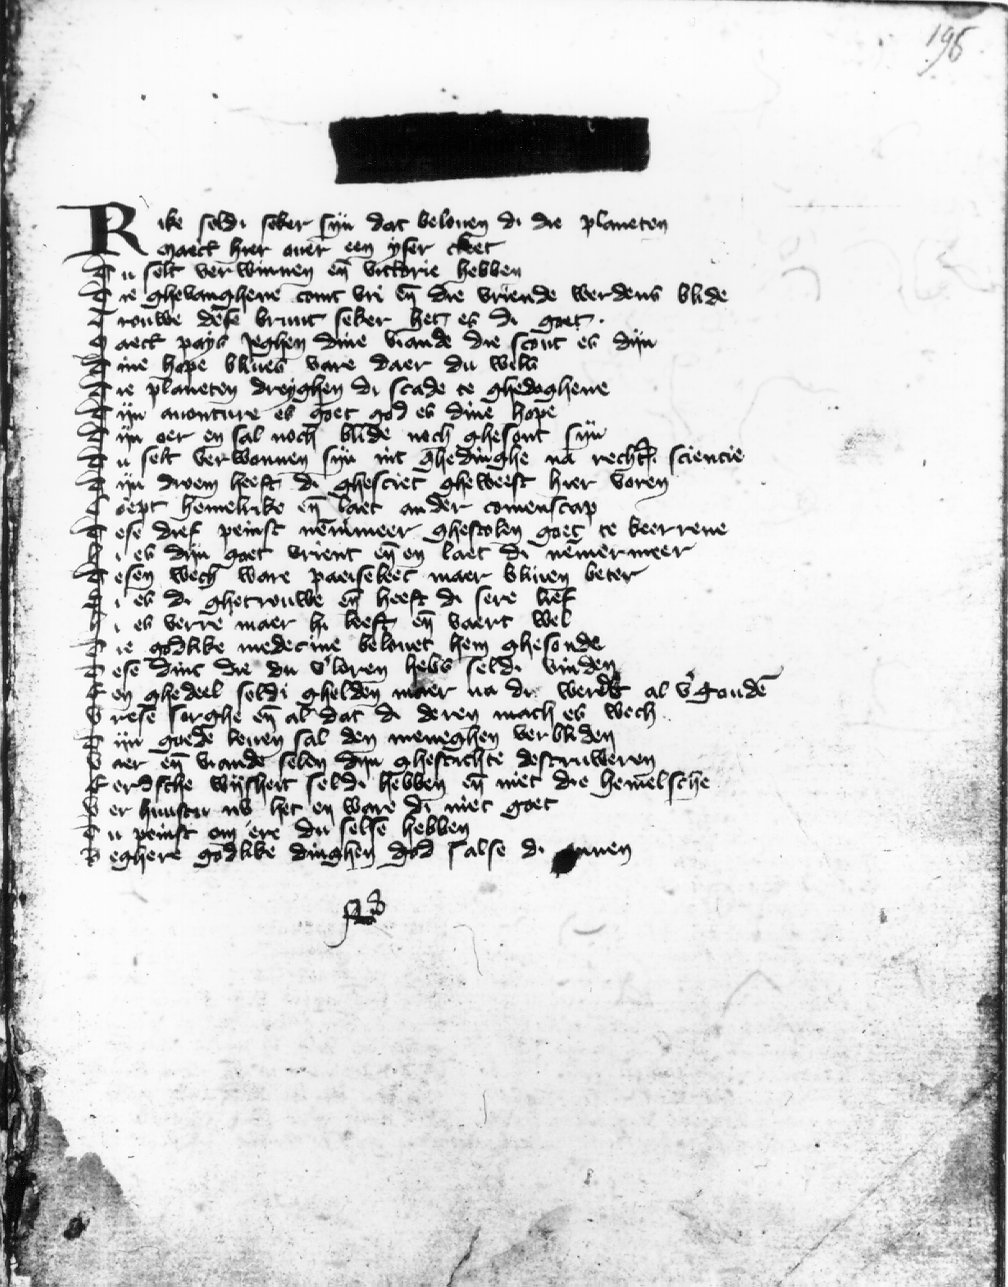 196
Rike seldi seker sijn dat belouen di die planeten
Maect hier ouer een yser cleet
Du selt verwinnen en̄ victorie hebben
Die gheuanghene comt vri en̄ die vriende werdens blide
Trouwe dese bruut seker het es di goet
Maect pays jeghen dine viande die scout es dijn
Dine hope bliues vare daer du wels
Die planeten dreyghen di scade te ghedoghene
Dijn auonture es goet god es dine hope
Dijn oer en sal noch blide noch ghesont sijn
Du selt verwonnen sijn int ghedinghe na recht sciencie
Dijn droem heeft di ghesciet gheweest hier voren
Coept hemelrike en̄ laet ander comenscap
Dese dief peinst nēmmeer ghestolen goet te keerrene
Hi es dijn goet vrient en̄ en laet di nēmermeer
Desen wech ware paeiseleec maer bliuen beter
Hi es di ghetrouwe en̄ heeft di sere lief
Hi es verre maer hi leeft en̄ vaert wel
Die godlike medecine belouet hem ghesonde
Dese dinc die du v'loren hebs seldi vinden
Een ghedeel seldi ghelden maer na di werdt al v'gouden
Vrese sorghe en̄ al dat di deren mach es wech
Dijn goede leuen sal den meneghen verbliden
Vaer en̄ viande selen dijn ghestichte destruweren
Eerdsche wijsheit seldi hebben en̄ niet die hemelsche
Ver huustu nv het en ware di niet goet
Du peinst om ere du selse hebben
Beghere godlike dinghen god salse di onnen